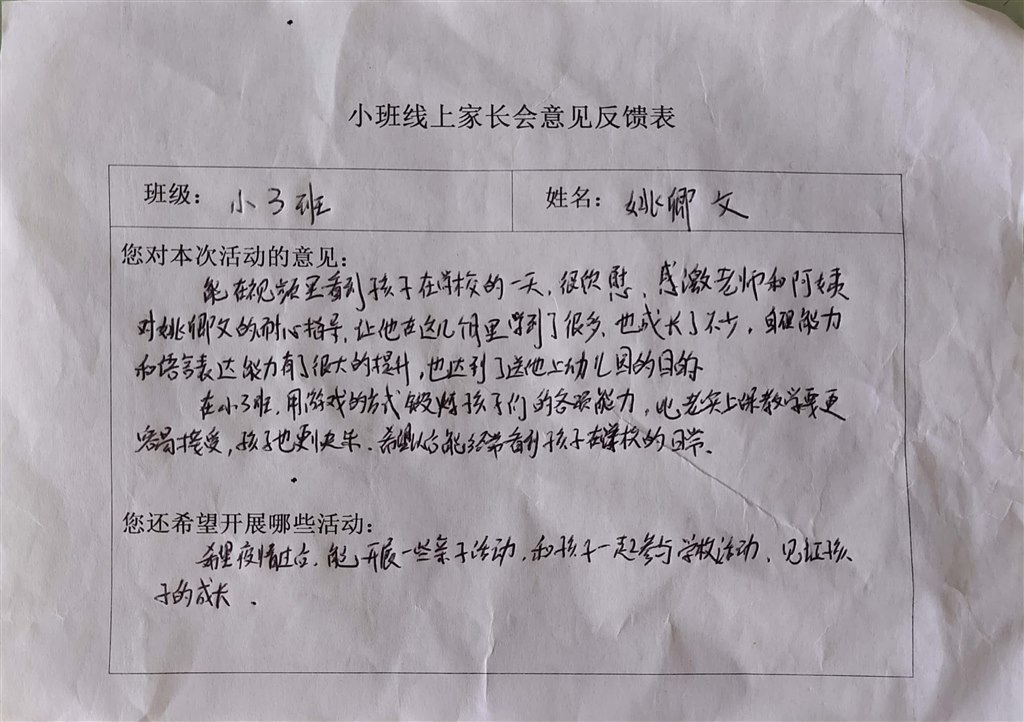 小班线上家长会意见反馈表
班级： 小3班 姓名： 姚卿文
您对本次活动的意见：
能在视频里看到孩子在学校的一天，很欣慰，感激老师和阿姨
对姚卿文的耐心指导，让他在这几个月里学到了很多，也成长了不少，自理能力
和语言表达能力有了很大的提升，也达到了送他上幼儿园的目的
在小3班，用游戏的方式锻炼孩子们的各项能力，比老实上课教学要更
容易接受，孩子也更快乐．希望以后能经常看到孩子在学校的日常．
您还希望开展哪些活动：
希望疫情过后，能开展一些亲子活动，和孩子一起参与学校活动，见证孩
子的成长．